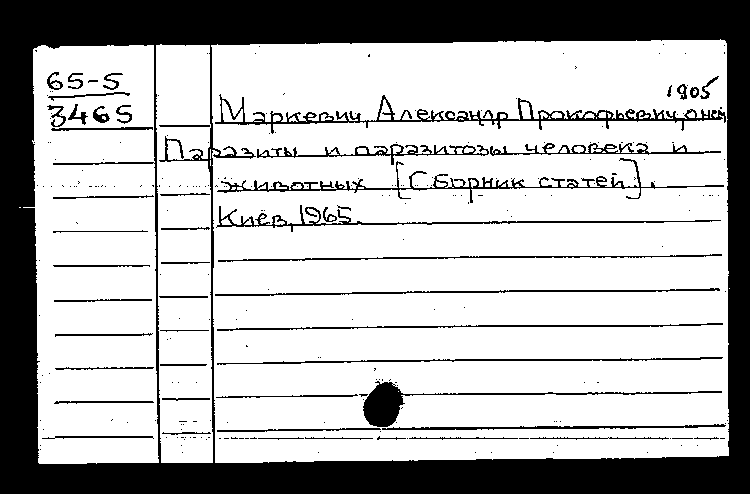 65-5
3465
1905
Маркевич, Александр Прокофьевич, о нем
Паразиты и паразитозы человека и
животных [Сборник статей].
Киев, 1965.